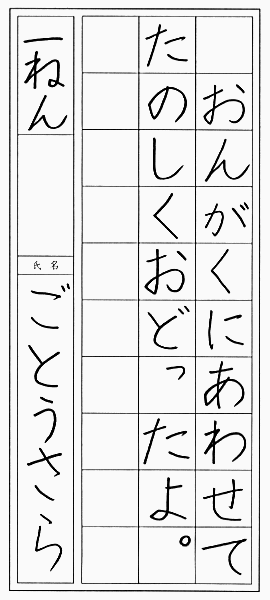 おんがくにあわせて
たのしくおどったよ。
一ねん
氏名
ごとうさら